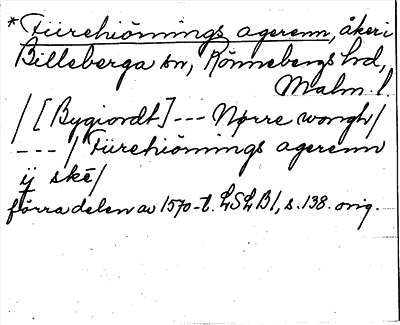 *Fiirehiörnings agerenn, åker i
Billeberga sn, Rönnebergs hd,
Malm. l.
/ [Bygiordt] --- Nørre wongh /
--- / Fiirehiörnings agerenn
ij ske /
förra delen av 1570-t. LSLB1, s. 138. orig.